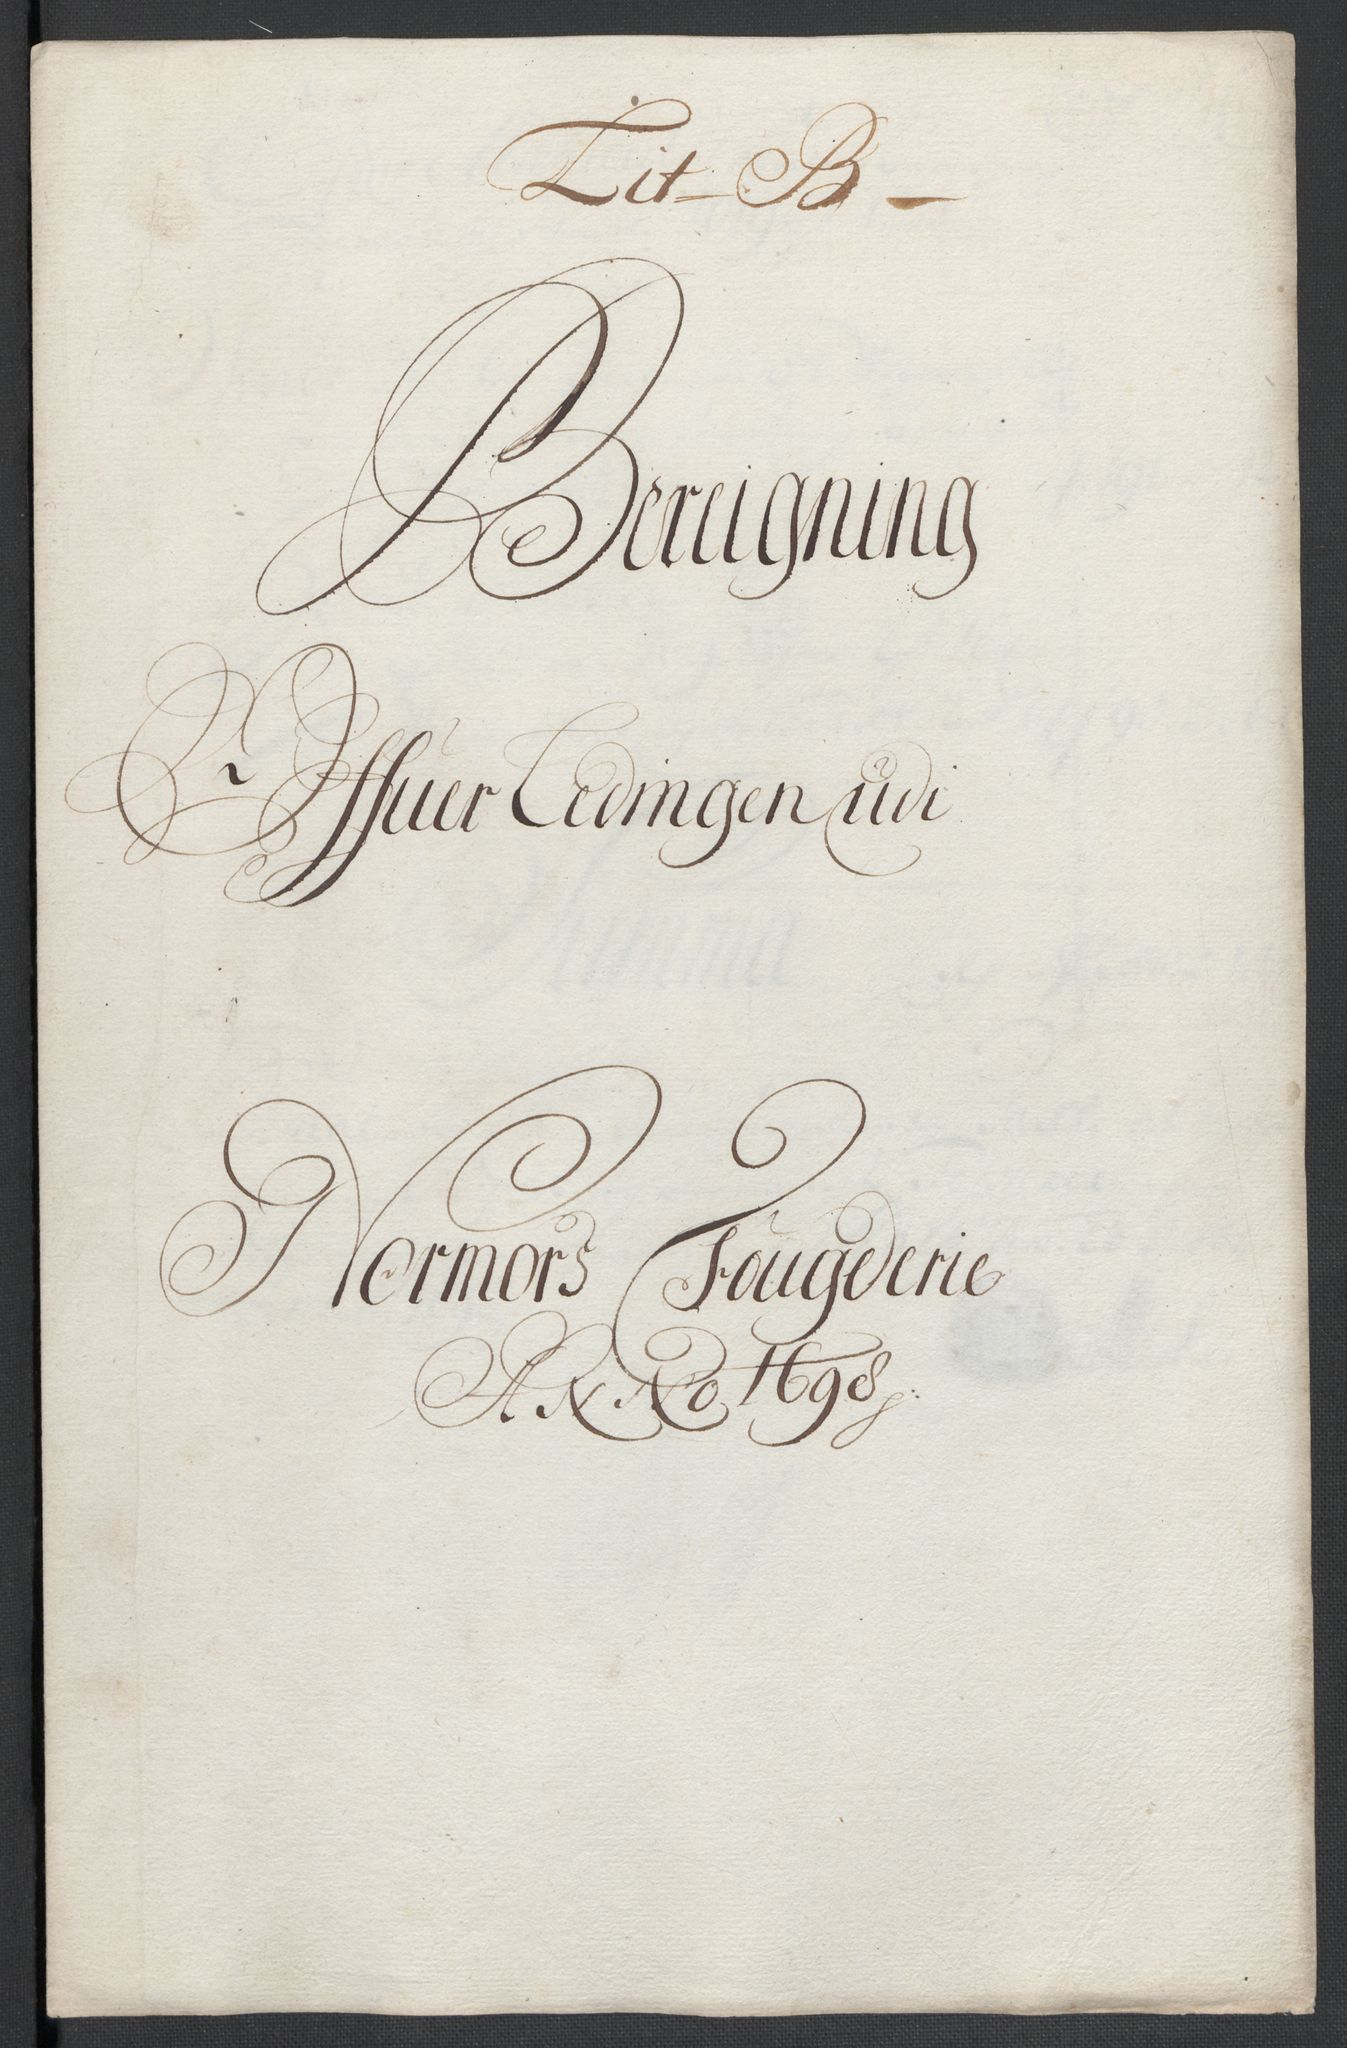 Lit- B-
Bereigning
Offuer Ledingen udi
Normørs Fougderie
ANNo 1698